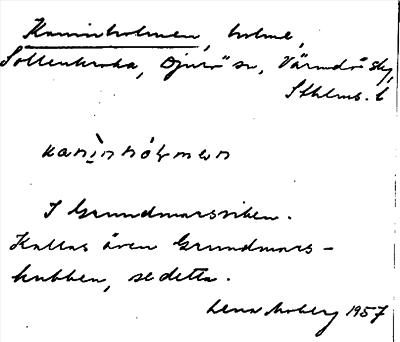 Kaninholmen, holme,
Sollenkroka, Djurö sn, Värmdö sky,
Sthlms. l
kanìnhólmen
I Grundmarsviken.
Kallas även Grundmars-
kubben, se detta.
Lena Moberg 1957